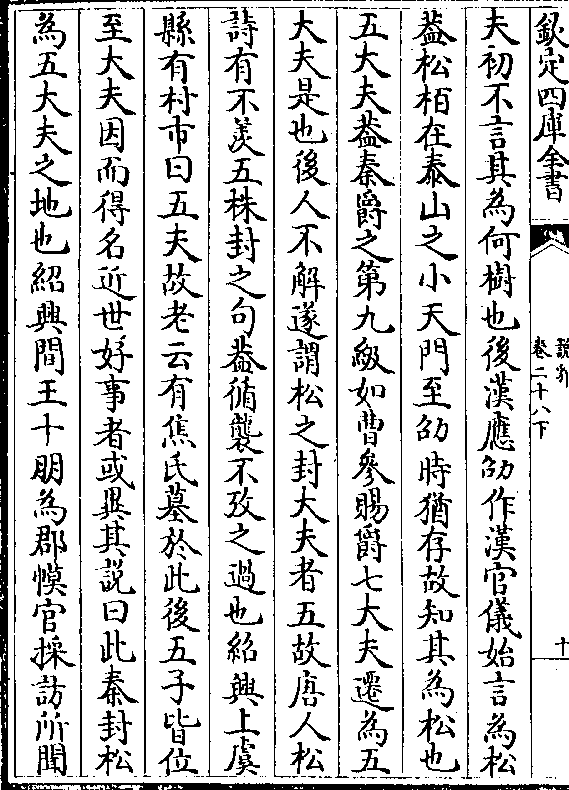 欽定四庫全書
說郛
卷二十八下
十
夫初不言其為何樹也後漢應劭作漢官儀始言為松
葢松柏在泰山之小天門至劭時猶存故知其為松也
五大夫葢秦爵之第九級如曹參賜爵七大夫遷為五
大夫是也後人不解遂謂松之封大夫者五故唐人松
詩有不羨五株封之句葢循襲不攷之過也紹興上虞
縣有村市曰五夫故老云有焦氏墓於此後五子皆位
至大夫因而得名近世好事者或異其說曰此秦封松
為五大夫之地也紹興間王十朋為郡幙官採訪所聞